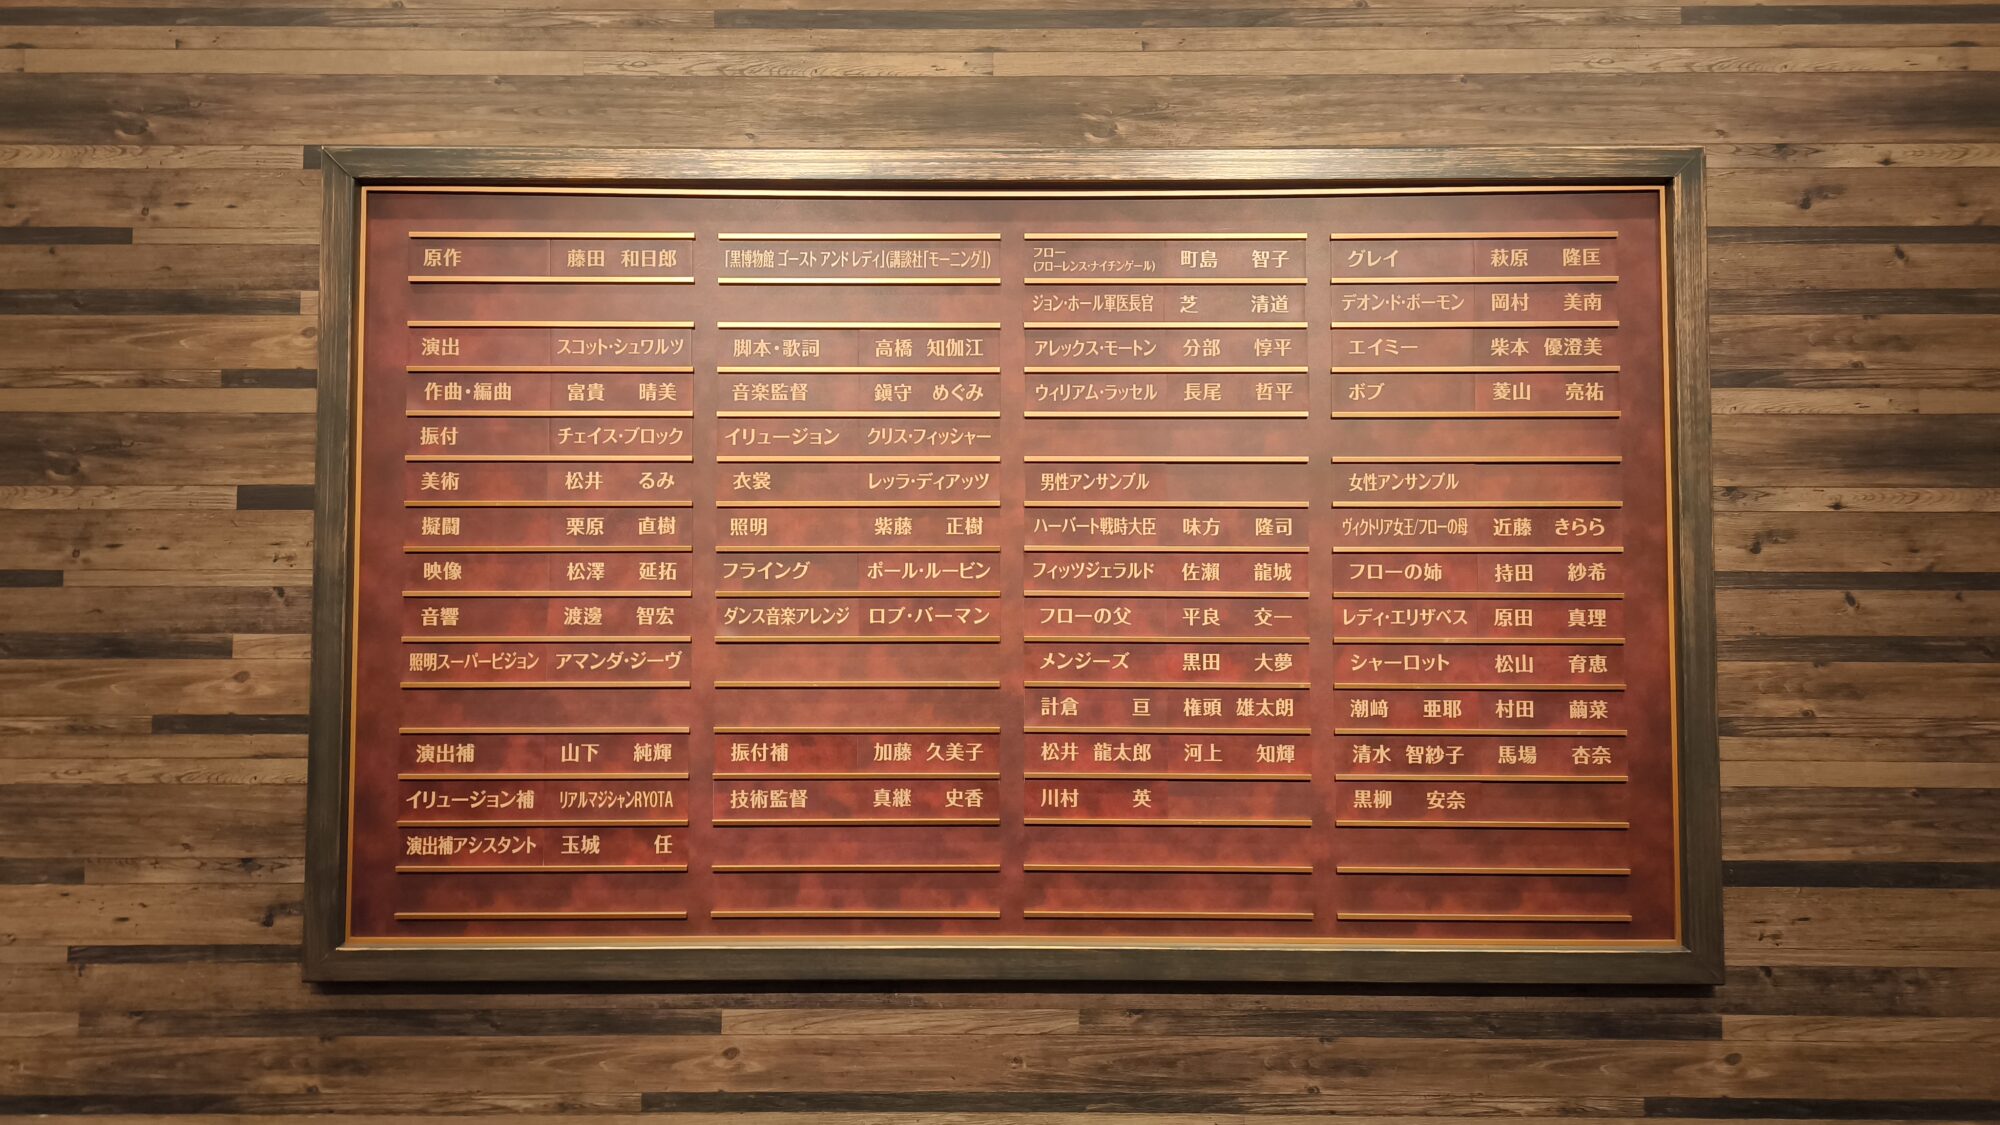 原作 藤田 和日郎
演出 スコット・シュワルツ
作曲・編曲 富貴 晴美
振付 チェイス・ブロック
美術 松井 るみ
擬闘 栗原 直樹
映像 松澤 延拓
音響 渡邉 智宏
照明スーパービジョン アマンダ・ジーヴ
演出補 山下 純輝
イリュージョン補 リアルマジシャンRYOTA
演出補アシスタント 玉城 任
「黒博物館 ゴースト アンド レディ」(講談社「モーニング」)
脚本・歌詞 高橋 知伽江
音楽監督 鎭守 めぐみ
イリュージョン クリス・フィッシャー
衣裳 レッラ・ディアッツ
照明 紫藤 正樹
フライング ポール・ルービン
ダンス音楽アレンジ ロブ・バーマン
振付補 加藤 久美子
技術監督 真継 史香
フロー
(フローレンス・ナイチンゲール) 町島 智子
ジョン・ホール軍医長官 芝 清道
アレックス・モートン 分部 惇平
ウィリアム・ラッセル 長尾 哲平
男性アンサンブル
ハーバート戦時大臣 味方 隆司
フィッツジェラルド 佐瀬 龍城
フローの父 平良 交一
メンジーズ 黒田 大夢
計倉 亘 権頭 雄太朗
松井 龍太郎 河上 知輝
川村 英
グレイ 萩原 隆匡
デオン・ド・ボーモン 岡村 美南
エイミー 柴本 優澄美
ボブ 菱山 亮祐
女性アンサンブル
ヴィクトリア女王/フローの母 近藤 きらら
フローの姉 持田 紗希
レディ・エリザベス 原田 真理
シャーロット 松山 育恵
潮﨑 亜耶 村田 繭菜
清水 智紗子 馬場 杏奈
黒柳 安奈